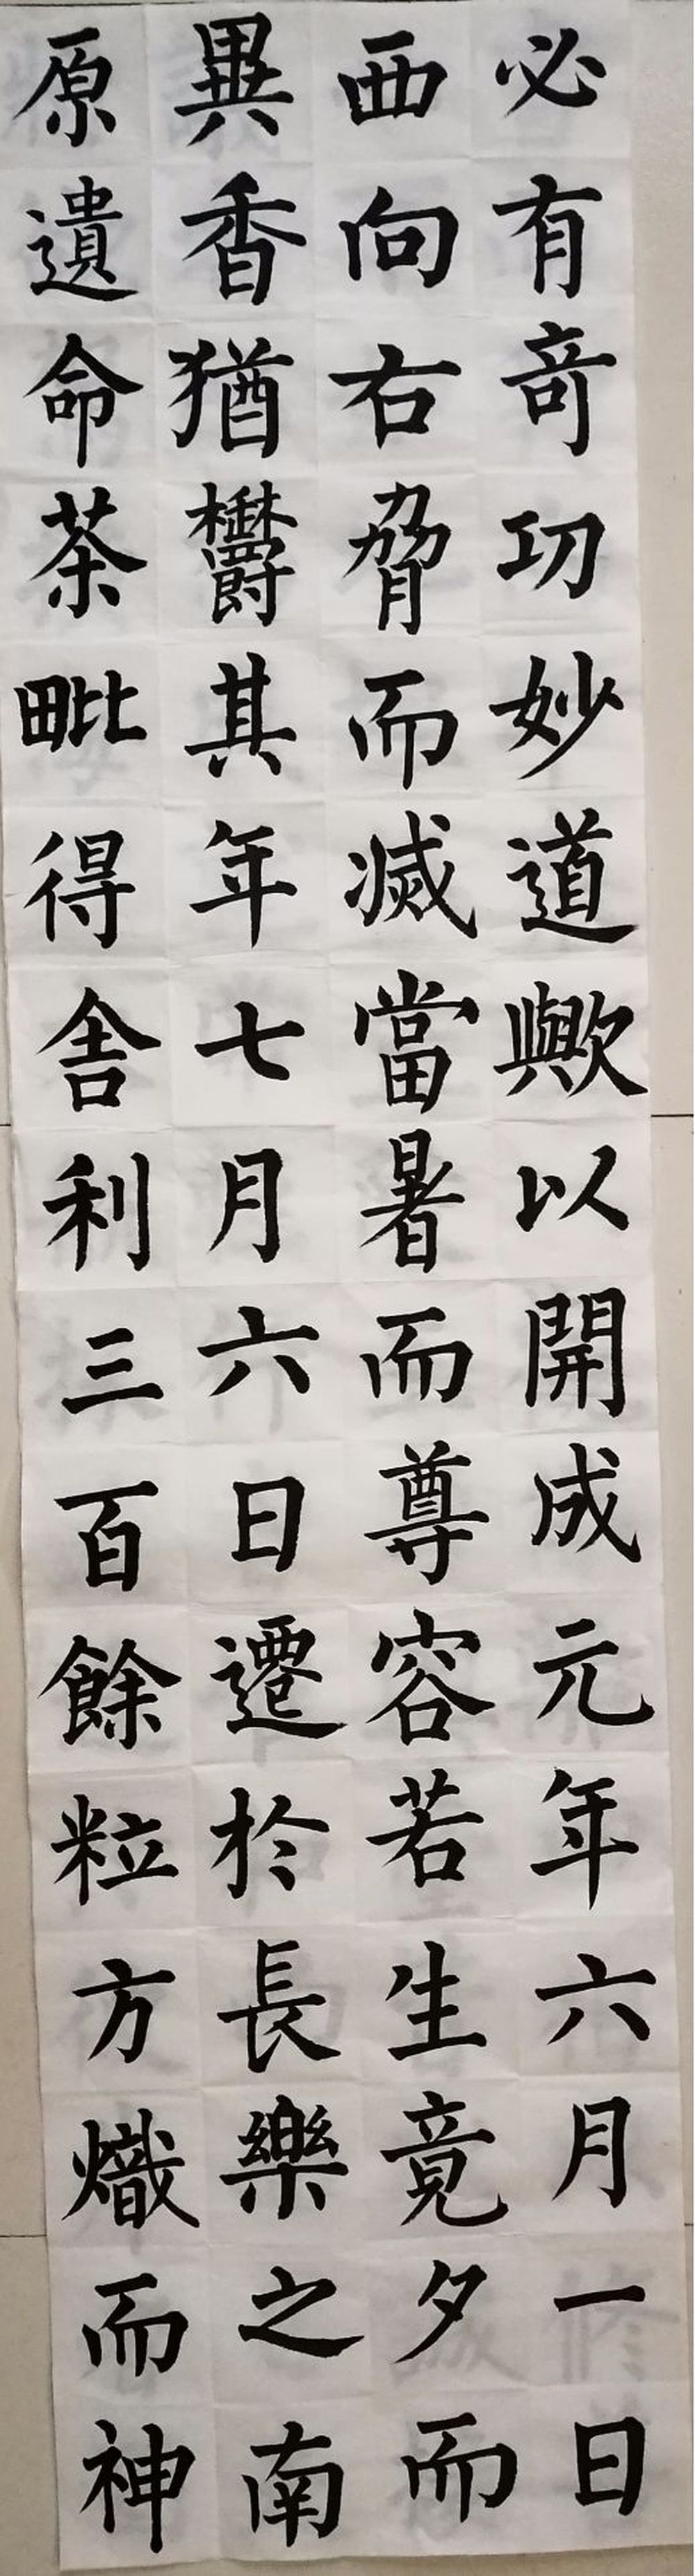 必有竒功妙道歟以開成元年六月一日
西向右脅而滅當暑而尊容若生竟夕而
異香猶欝其年七月六日遷於長樂之南
原遺命茶毗得舍利三百餘粒方熾而神